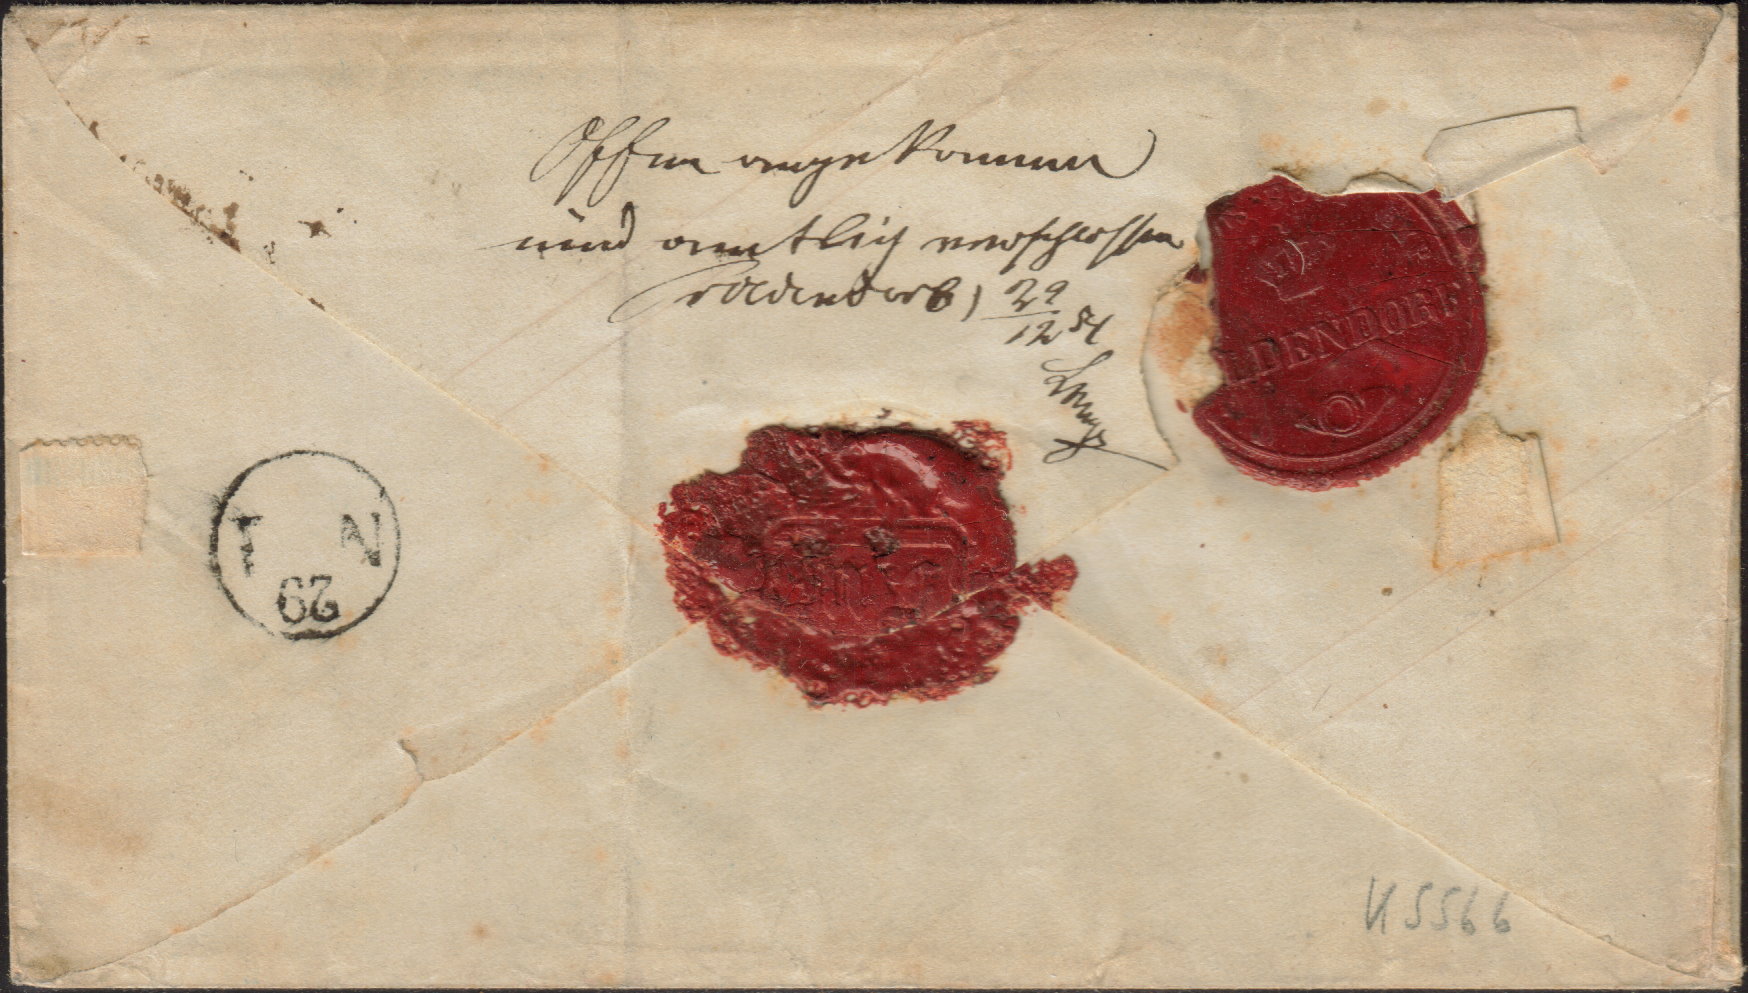 Offen angekommen
und amtlich verschlossen
Oldendorf, 29/12 54
LDENDORF
N 1
29
K 5566